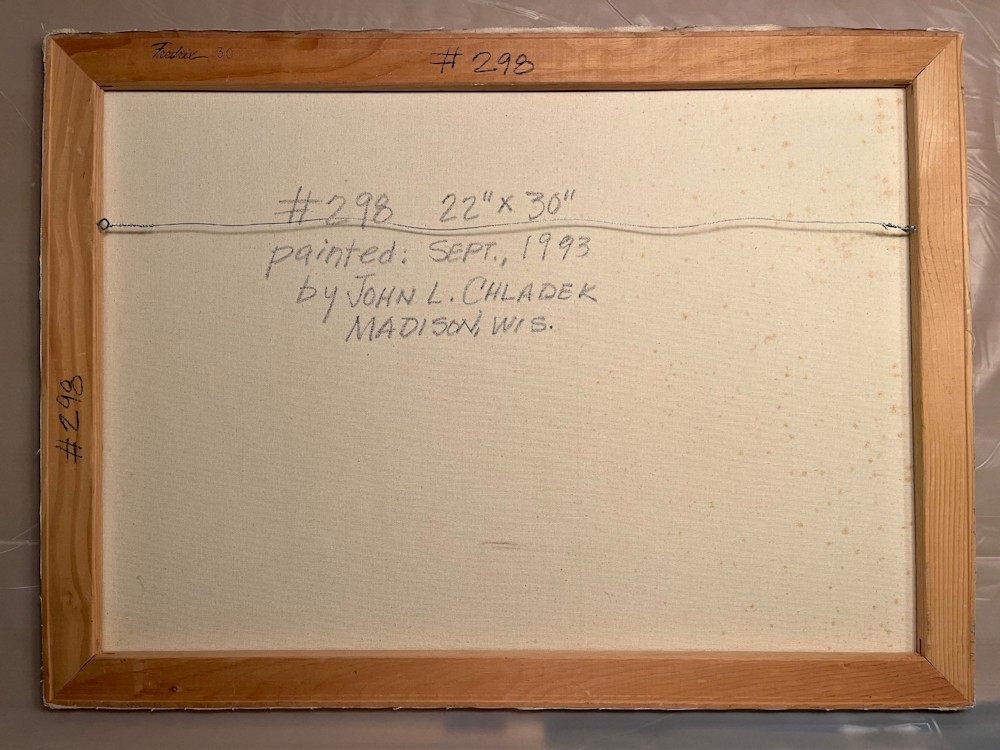 Fredrix 30
# 298
# 298 22" x 30"
painted: SEPT., 1993
by JOHN L. CHLADEK
MADISON, WIS.
# 298